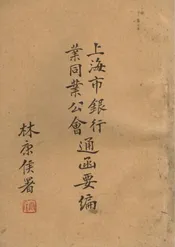 上海市銀行
業同業公會
通函要編
林康侯署